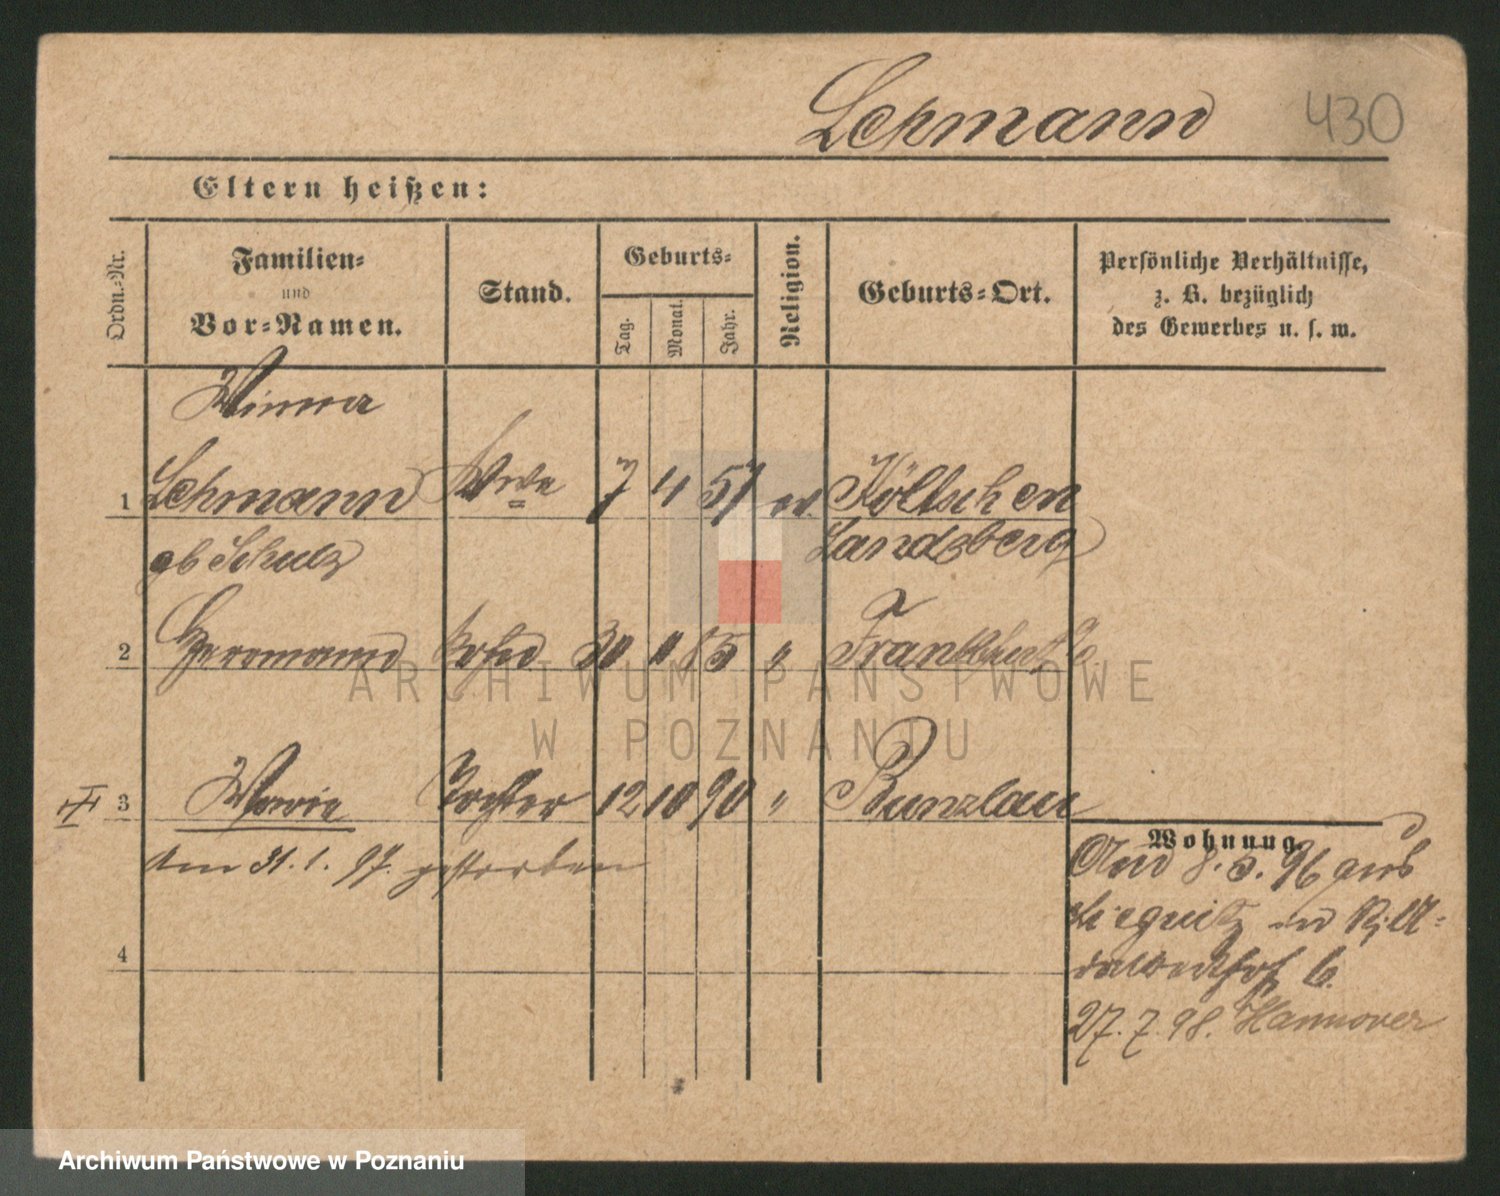 Lehmann 430
Eltern heißen:
Ordn.-Nr.
Familien-
und
Vor-Namen.
Stand.
Geburts-
Tag.
Monat.
Jahr.
Religion.
Geburts-Ort.
Persönliche Verhältnisse,
z. B. bezüglich
des Gewerbes u. s. w.
Minna
1 Lehmann Wwe 7 4 57 ev. Költschen
gb Schulz Landsberg
2 Herrmann Sohn 30 85 " Frankfurt
3 Marie Tochter 12 10 90 " Bunzlau
am 31.1.97. gestorben
Wohnung.
And 8.5.96 aus
Liegnitz
4
27.7.98. Hannover
ARCHIWUM PAŃSTWOWE
W POZNANIU
Archiwum Państwowe w Poznaniu